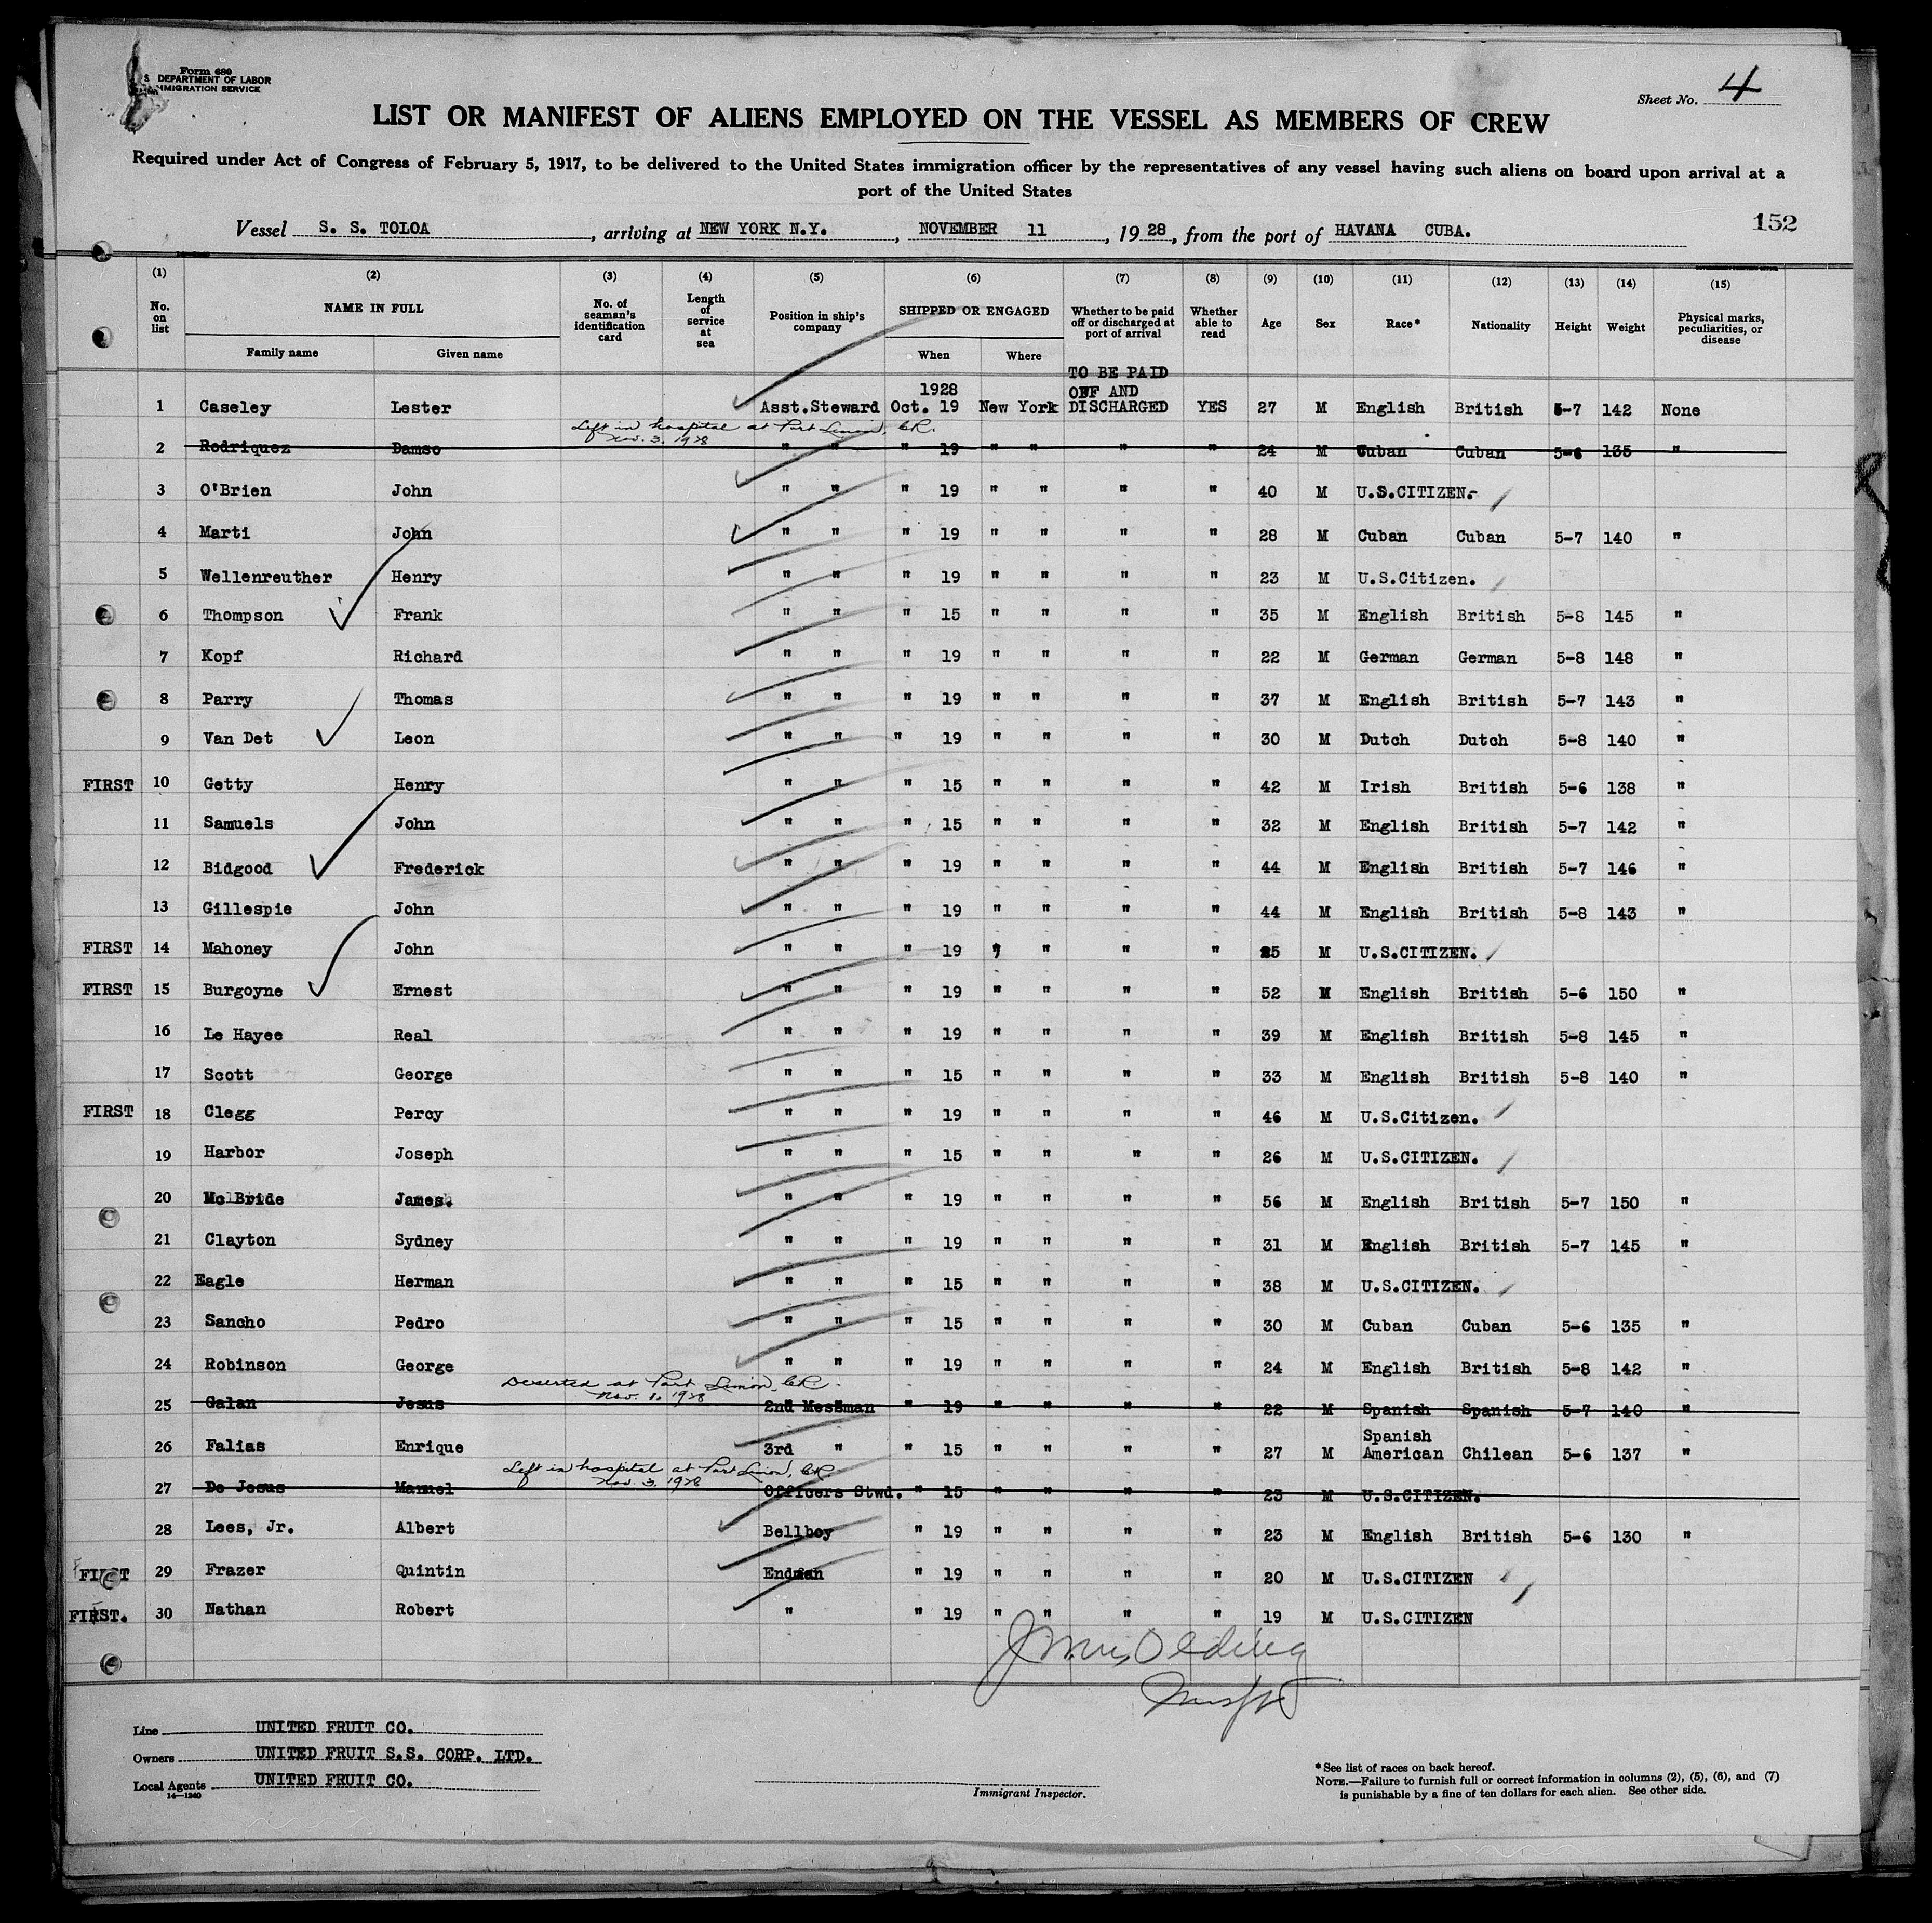 Form 680
S DEPARTMENT OF LABOR
IMMIGRATION SERVICE
Sheet No. 4
LIST OR MANIFEST OF ALIENS EMPLOYED ON THE VESSEL AS MEMBERS OF CREW
Required under Act of Congress of February 5, 1917, to be delivered to the United States immigration officer by the representatives of any vessel having such aliens on board upon arrival at a
port of the United States
152
Vessel S. S. TOLOA, arriving at NEW YORK N.Y., NOVEMBER 11, 1928, from the port of HAVANA CUBA.
(1) (2) (3) (4) (5) (6) (7) (8) (9) (10) (11) (12) (13) (14) (15)
No. on list NAME IN FULL No. of seaman's identification card Length of service at sea Position in ship's company SHIPPED OR ENGAGED Whether to be paid off or discharged at port of arrival Whether able to read Age Sex Race* Nationality Height Weight Physical marks, peculiarities, or disease
Family name Given name When Where
TO BE PAID
1928 OFF AND
1 Caseley Lester Asst.Steward Oct. 19 New York DISCHARGED YES 27 M English British 5-7 142 None
Left in hospital at Port Limon, C.R.
Nov. 3. 1928
2 Rodriquez Damso " " " 19 " " " " 24 M Cuban Cuban 5-6 135 "
3 O'Brien John " " " 19 " " " " 40 M U.S.CITIZEN.
4 Marti John " " " 19 " " " " 28 M Cuban Cuban 5-7 140 "
5 Wellenreuther Henry " " " 19 " " " " 23 M U.S.Citizen.
6 Thompson Frank " " " 15 " " " " 35 M English British 5-8 145 "
7 Kopf Richard " " " 19 " " " " 22 M German German 5-8 148 "
8 Parry Thomas " " " 19 " " " " 37 M English British 5-7 143 "
9 Van Det Leon " " " 19 " " " " 30 M Dutch Dutch 5-8 140 "
FIRST 10 Getty Henry " " " 15 " " " " 42 M Irish British 5-6 138 "
11 Samuels John " " " 15 " " " " 32 M English British 5-7 142 "
12 Bidgood Frederick " " " 19 " " " " 44 M English British 5-7 146 "
13 Gillespie John " " " 19 " " " " 44 M English British 5-8 143 "
FIRST 14 Mahoney John " " " 19 " " " " 25 M U.S.CITIZEN.
FIRST 15 Burgoyne Ernest " " " 19 " " " " 52 M English British 5-6 150 "
16 Le Hayee Real " " " 19 " " " " 39 M English British 5-8 145 "
17 Scott George " " " 15 " " " " 33 M English British 5-8 140 "
FIRST 18 Clegg Percy " " " 19 " " " " 46 M U.S.Citizen.
19 Harbor Joseph " " " 15 " " " " 26 M U.S.CITIZEN.
20 Mc Bride James. " " " 19 " " " " 56 M English British 5-7 150 "
21 Clayton Sydney " " " 19 " " " " 31 M English British 5-7 145 "
22 Eagle Herman " " " 15 " " " " 38 M U.S.CITIZEN.
23 Sancho Pedro " " " 15 " " " " 30 M Cuban Cuban 5-6 135 "
24 Robinson George " " " 19 " " " " 24 M English British 5-8 142 "
Deserted at Port Limon, C.R.
Nov. 1. 1928
25 Galan Jesus 2nd Messman " 19 " " " " 22 M Spanish Spanish 5-7 140 "
26 Falias Enrique 3rd " " 15 " " " " 27 M Spanish American Chilean 5-6 137 "
Left in hospital at Port Limon, C.R.
Nov. 3. 1928
27 De Jesus Manuel Officers Stwd. " 15 " " " " 23 M U.S.CITIZEN.
28 Lees, Jr. Albert Bellboy " 19 " " " " 23 M English British 5-6 130 "
FIRST 29 Frazer Quintin Endman " 19 " " " " 20 M U.S.CITIZEN
FIRST. 30 Nathan Robert " " 19 " " " " 19 M U.S.CITIZEN
Line UNITED FRUIT CO.
Owners UNITED FRUIT S.S. CORP. LTD.
Local Agents UNITED FRUIT CO.
14—1240
Immigrant Inspector.
*See list of races on back hereof.
NOTE.—Failure to furnish full or correct information in columns (2), (5), (6), and (7)
is punishable by a fine of ten dollars for each alien. See other side.